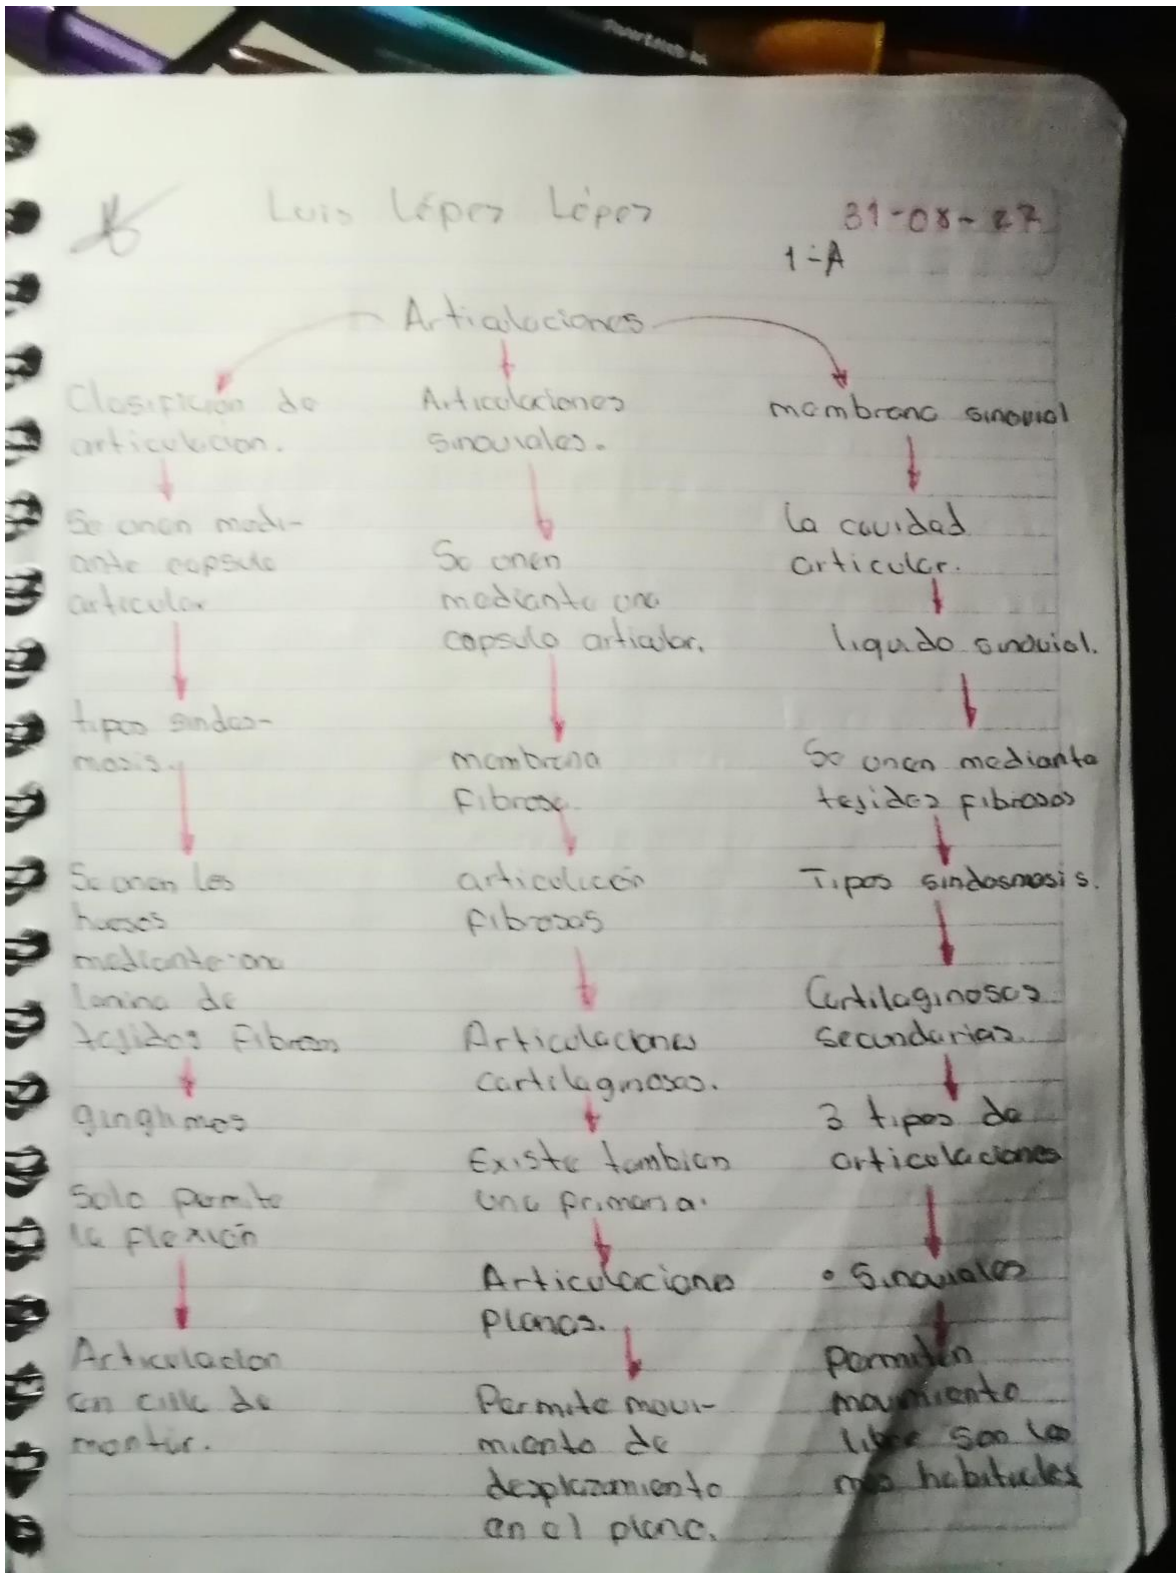 Luis López López
31-08-22
1-A
Articulaciones
Clasifición de
articulacion.
Se unen medi-
ante capsula
articular
tipos sindes-
mosis.
Se unen los
huesos
mediante una
lamina de
tejidos fibrosos
ginglimos
Solo permite
la flexión
Articulacion
en cilla de
montar.
Articulaciones
sinoviales.
Se unen
mediante una
capsula articular.
membrana
fibrosa.
articulición
fibrosas
Articulaciones
cartilaginosas.
Existe tambien
una primaria.
Articulaciones
planas.
Permite movi-
miento de
desplazamiento
en el plano.
membrana sinovial
la cavidad
articular.
liquido sinovial.
Se unen mediante
tejidos fibrosos
Tipos sindesmosis.
Cartilaginosas
secundarias.
3 tipos de
articulaciones
• Sinoviales
Permiten
movimiento
libre son las
mas habituales